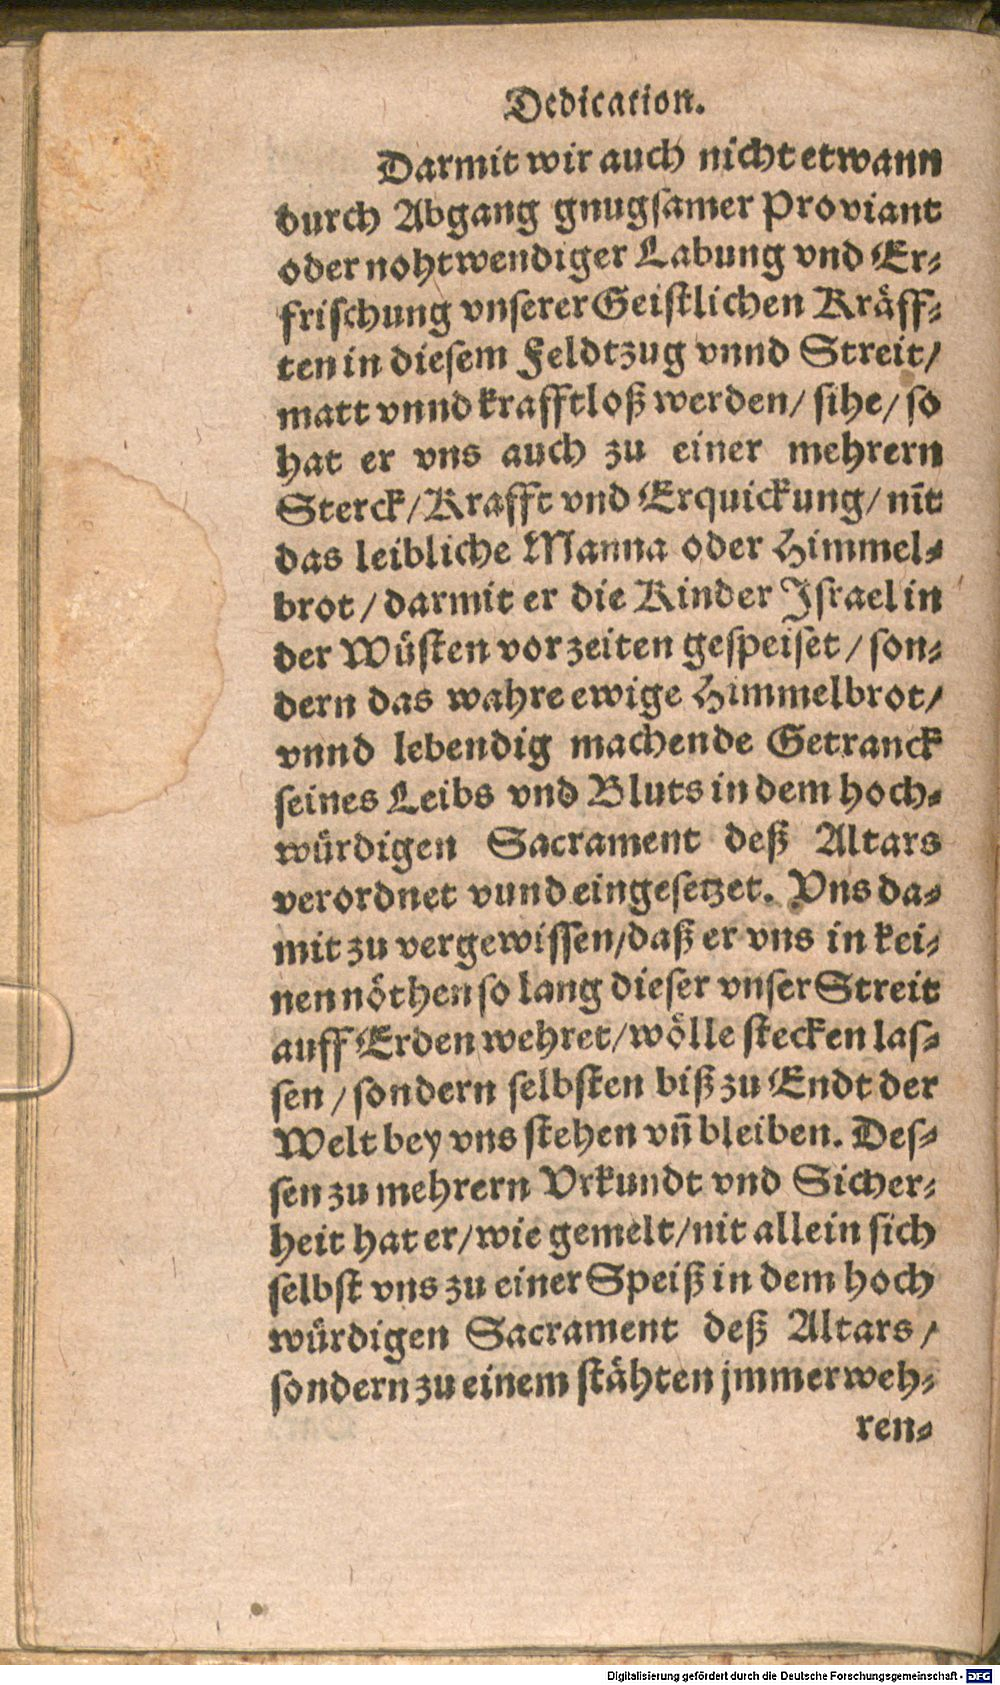 Dedication.
Darmit wir auch nicht etwann
durch Abgang gnugsamer Proviant
oder nohtwendiger Labung vnd Er-
frischung vnserer Geistlichen Kräff-
ten in diesem Feldtzug vnnd Streit/
matt vnnd krafftloß werden/ sihe/ so
hat er vns auch zu einer mehrern
Sterck/ Krafft vnd Erquickung/ nit
das leibliche Manna oder Himmel-
brot/ darmit er die Kinder Israel in
der Wüsten vor zeiten gespeiset/ son-
dern das wahre ewige Himmelbrot/
vnnd lebendig machende Getranck
seines Leibs vnd Bluts in dem hoch-
würdigen Sacrament deß Altars
verordnet vund eingesetzet. Vns da-
mit zu vergewissen/ daß er vns in kei-
nen nöthen so lang dieser vnser Streit
auff Erden wehret/ wölle stecken las-
sen/ sondern selbsten biß zu Endt der
Welt bey vns stehen vñ bleiben. Des-
sen zu mehrern Vrkundt vnd Sicher-
heit hat er/ wie gemelt/ nit allein sich
selbst vns zu einer Speiß in dem hoch
würdigen Sacrament deß Altars/
sondern zu einem stähten jmmerweh-
ren-
Digitalisierung gefördert durch die Deutsche Forschungsgemeinschaft - DFG